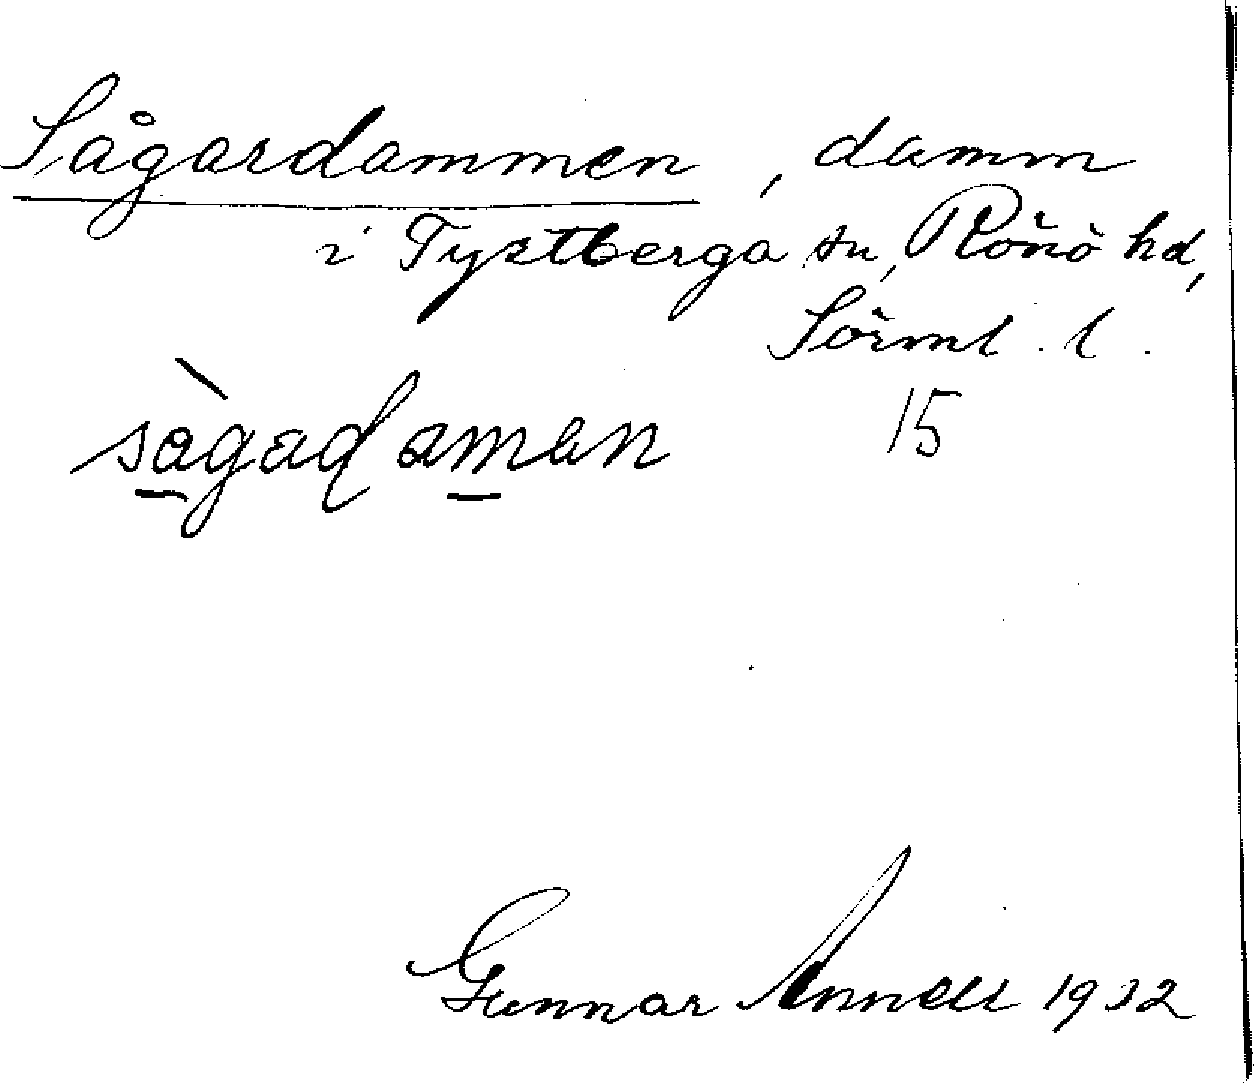 Sågardammen, damm
i Tystberga sn, Rönö hd,
Sörml. l.
15
sàgaḍamen
Gunnar Annell 1932